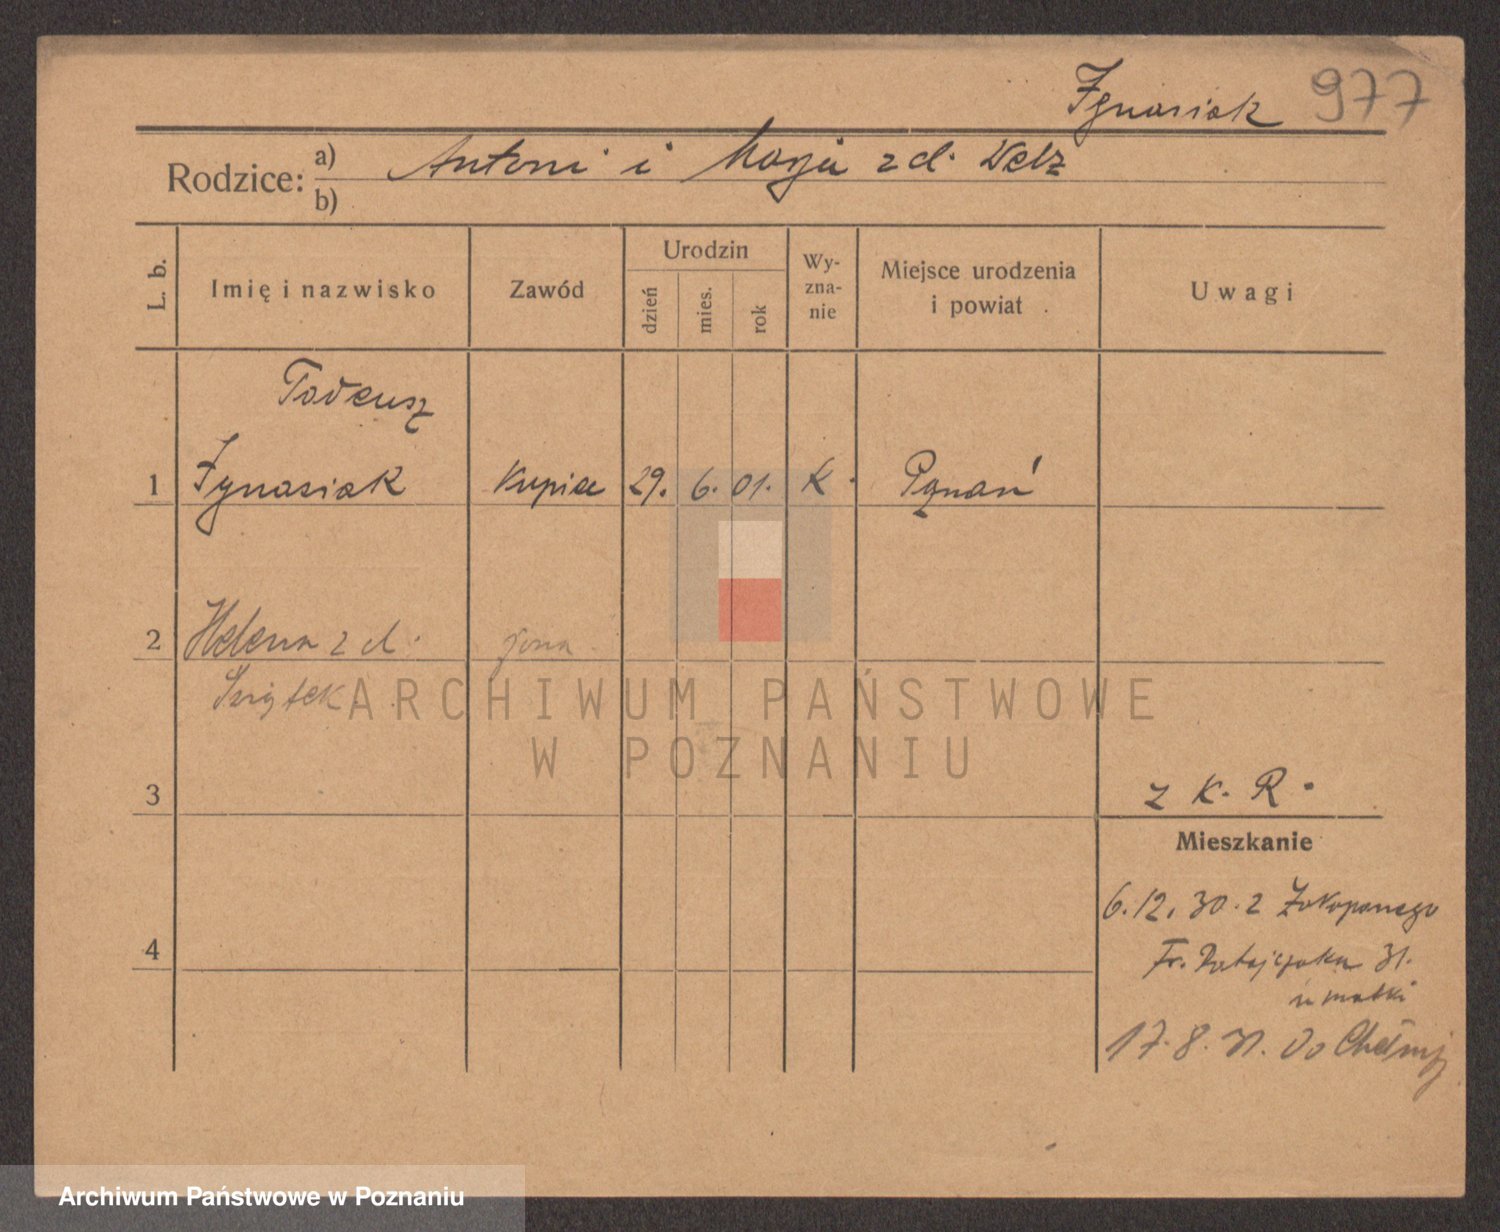 Ignasiak 977
Rodzice: a) Antoni i Marja z d. Welz
b)
L. b. Imię i nazwisko Zawód Urodzin dzień mies. rok Wy-zna-nie Miejsce urodzenia i powiat Uwagi
Tadeusz
1 Ignasiak Kupiec 29. 6. 01. K. Poznań
2 Helena z d. żona
Świątek
ARCHIWUM PAŃSTWOWE
W POZNANIU
3 z K. R.
Mieszkanie
6.12.30. z Zakopanego
4 Fr. Ratajczaka 31.
u matki
17.8.31. do Chełmży
Archiwum Państwowe w Poznaniu